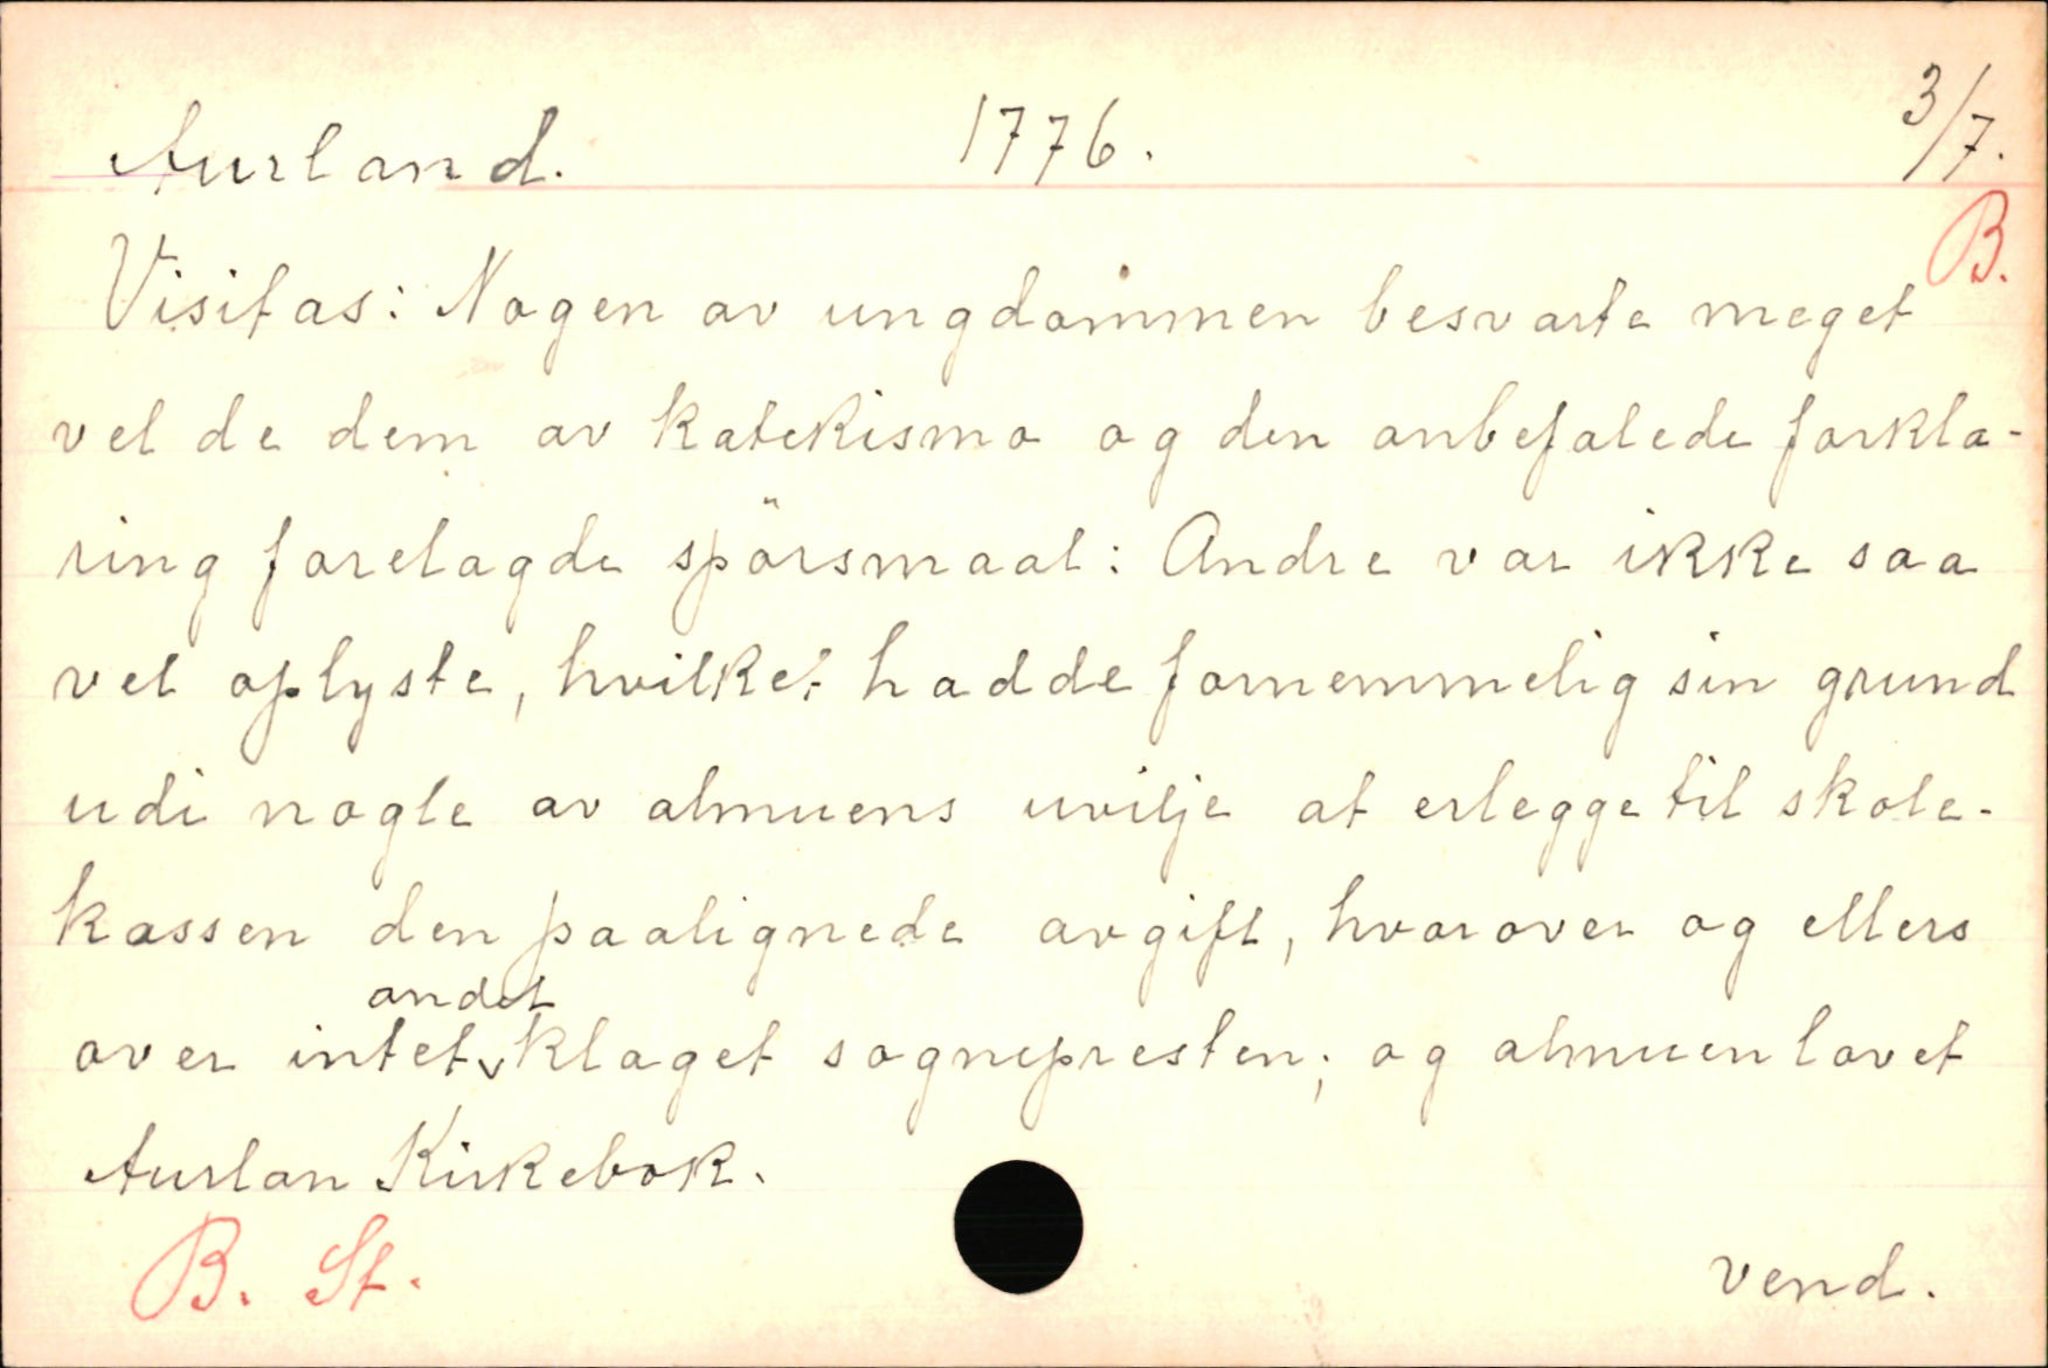 Aurland. 1776. 3/7.
B.
Visitas: Nogen av ungdommen besvarte meget
vel de dem av katekismo og den anbefalede forkla-
ring forelagde spörsmaal: Andre var ikke saa
vel oplyste, hvilket hadde fornemmelig sin grund
udi nogle av almuens uvilje at erlegge til skole-
kassen den paalignede avgift, hvorover og ellers
andet
over intet klaget sognepresten; og almuen lovet
Aurlan Kirkebok.
B. St.
vend.